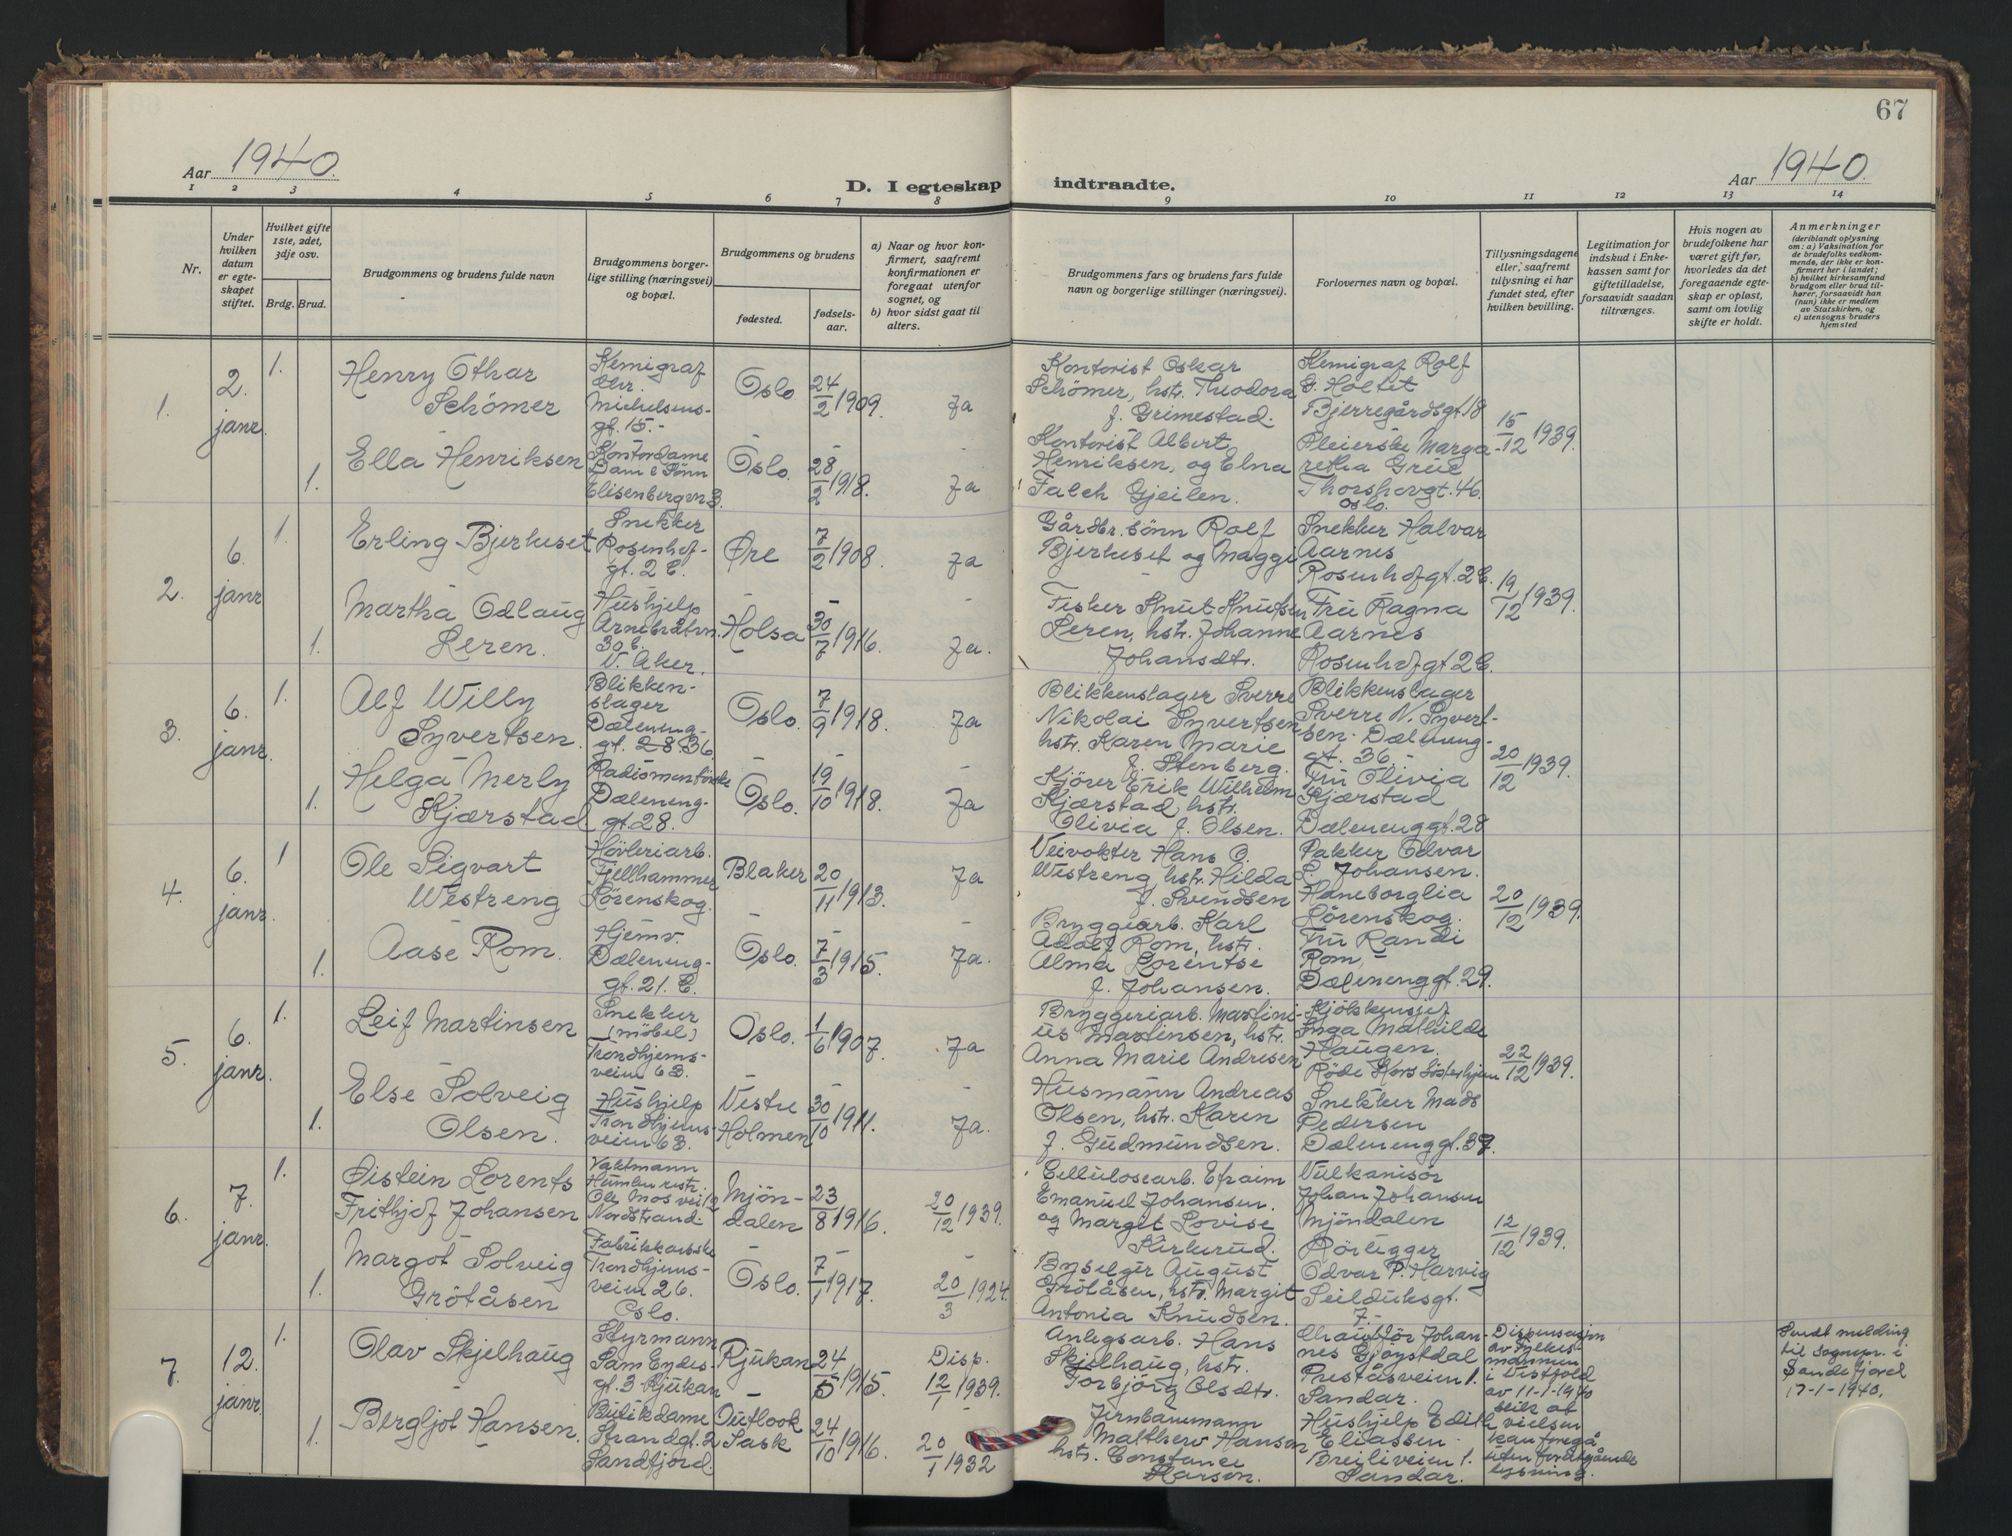 67
Aar 1940.
Aar 1940.
D. I egteskap indtraadte.
1 2 3 4 5 6 7 8 9 10 11 12 13 14
Nr.
Under hvilken datum er egteskapet stiftet.
Hvilket gifte 1ste, 2det, 3dje osv.
Brdg. Brud.
Brudgommens og brudens fulde navn
Brudgommens borgerlige stilling (næringsvei) og bopæl.
Brudgommens og brudens
fødested.
fødselsaar.
a) Naar og hvor konfirmert, saafremt konfirmationen er foregaat utenfor sognet, og
b) hvor sidst gaat til alters.
Brudgommens fars og brudens fars fulde navn og borgerlige stillinger (næringsvei).
Forlovernes navn og bopæl.
Tillysningsdagene eller, saafremt tillysning ei har fundet sted, efter hvilken bevilling.
Legitimation for indskud i Enkekassen samt for giftetilladelse, forsaavidt saadan tiltrænges.
Hvis nogen av brudefolkene har været gift før, hvorledes da det foregaaende egteskap er opløst, samt om lovlig skifte er holdt.
Anmerkninger
(deriblandt oplysning om: a) Vaksination for de brudefolks vedkommende, der ikke er konfirmert her i landet; b) hvilket kirkesamfund brudgom eller brud tilhører, forsaavidt han (hun) ikke er medlem av Statskirken, og c) utensogns bruders hjemsted
1.
2. janr.
1.
Henry Othar
Schömer
Kemigraf
Chr.
Michelsens-
gt. 15.-
Oslo
24/2 1909.
Ja
Kontorist Oskar
Schömer, hstr. Theodora
f. Grimestad.
Kemigraf Rolf
G. Holtet
Bjerregårdsgt. 18
15/12 1939.
1.
Ella Henriksen
Kontordame
Dam & Sönn
Elisenbergvn. 3.
Oslo.
28/2 1918.
Ja
Kontorist Albert
Henriksen, og Elna
Falch Gjeilen.
Pleierske Marga-
retha Grüe
Thorshovgt. 46.
Oslo.
2.
6. janr
1.
Erling Bjerkeset
Snekker
Rosenhof-
gt. 2 C.
Øre
7/2 1908.
Ja
Gårdbr. sönn Rolf
Bjerkeset og Maggi
Snekker Halvar
Aarnes
Rosenhofgt. 2 C.
19/12 1939.
1.
Martha Odlaug
Leren.
Hushjelp
Arnebråtvn.
30 C.
V. Aker.
Holsa
30/7 1916.
Ja.
Fisker Knut Knudsen
Leren, hstr. Johanne
Johansdtr.
Fru Ragna
Aarnes
Rosenhofgt. 2 C.
3.
6. janr.
1.
Alf Willy
Syvertsen.
Blikken-
slager
Dæleneng-
gt. 28 36
Oslo.
7/9 1918.
Ja
Blikkenslager Sverre
Nikolai Syvertsen
hstr. Karen Marie
f. Stenberg.
Blikkenslager
Sverre N. Syvert-
sen. Dæleneng-
gt. 36.-
20/12 1939.
1.
Helga Merly
Kjærstad
Radiomontörske
Dæleneng-
gt. 28.
Oslo.
19/10 1918.
Ja
Kjörer Erik Wilhelm
Kjærstad, hstr.
Olivia f. Olsen.
Fru Olivia
Kjærstad
Dælenenggt. 28
4.
6. janr.
1
Ole Sigvart
Westreng
Hövleriarb.
Fjellhammer
Lörenskog.
Blaker
20/11 1913.
Ja
Veivokter Hans O.
Westreng hstr. Hilda
f. Svendsen
Pakker Edvar
L. Johansen.
Haneborglia
Lörenskog.
20/12 1939.
1.
Aase Rom.
Hjemv.
Dæleneng-
gt. 21. C.
Oslo.
7/3 1915.
Ja.
Bryggiarb. Karl
Adolf Rom, hstr.
Alma Lorentse
f. Johansen.
Fru Randi
Rom
Dælenenggt. 29.
5.
6. janr.
1.
Leif Martinsen
Snekker
(möbel)
Trondhjems-
veien 63.
Oslo.
1/6 1907.
Ja
Bryggeriarb. Martini-
us Martinsen, hstr.
Anna Marie Andresen
Kjökkensjef
Inga Mathilde
Haugen.
Röde Kors Sösterhjem
22/12 1939.
1.
Else Solveig
Olsen.
Hushjelp
Trondhjems-
veien 63.
Vestre
Holmen
30/10 1911.
Ja.
Husmann Andreas
Olsen, hstr. Karen
f. Gudmundsen.
Snekker Mads
Pedersen
Dælenenggt. 37.
6.
7. janr.
1.
Øistein Lorents
Frithjof Johansen
Vaktmann
Ole Mos vei 12
Nordstrand.
Mjön-
dalen
23/8 1916.
20/12 1939.
Cellulosearb. Efraim
Emanuel Johansen.
og Margit Lovise
Kirkerud.
Vulkanisör
Johan Johansen
Mjöndalen
12/12 1939.
1.
Margot Solveig
Grötåsen
Fabrikkarbske
Trondhjems-
veien 26.
Oslo.
Oslo.
7/1 1917.
20/3 1924.
Byselger August
Grötåsen, hstr. Margit
Antonia Knudsen.
Rörlegger
Odvar P. Harvig
Seilduksgt.
7.-
7.
12. janr.
1.
Olav Skjelhaug
Styrmann
Sam Eydes-
gt. 3 Rjukan
Rjukan
24/5 1915.
Disp.
12/1 1939.
Anlegsarb. Hans
Skjelhaug, hstr.
Torbjörg Olsdtr.
Chaufför Johan-
nes Gjöystdal
Preståsveien 1.
Sandar.
Dispensasjon
av Fylkes
mannen
i Vestfold
av 11-1-1940
slik at
vielsen
kan foregå
uten foregående
lysning.
Sendt melding
til sognepr. i
Sandefjord
17-1-1940.
1.
Bergljot Hansen.
Butikdame
Strandgt. 2
Sandfjord.
Outlook
Sask
24/10 1916.
20/1 1932
Jernbanemann
Mathew Hansen
hstr. Constance
Hansen.
Hushjelp Edith
Eliassen
Breiliveien 1.
Sandar.